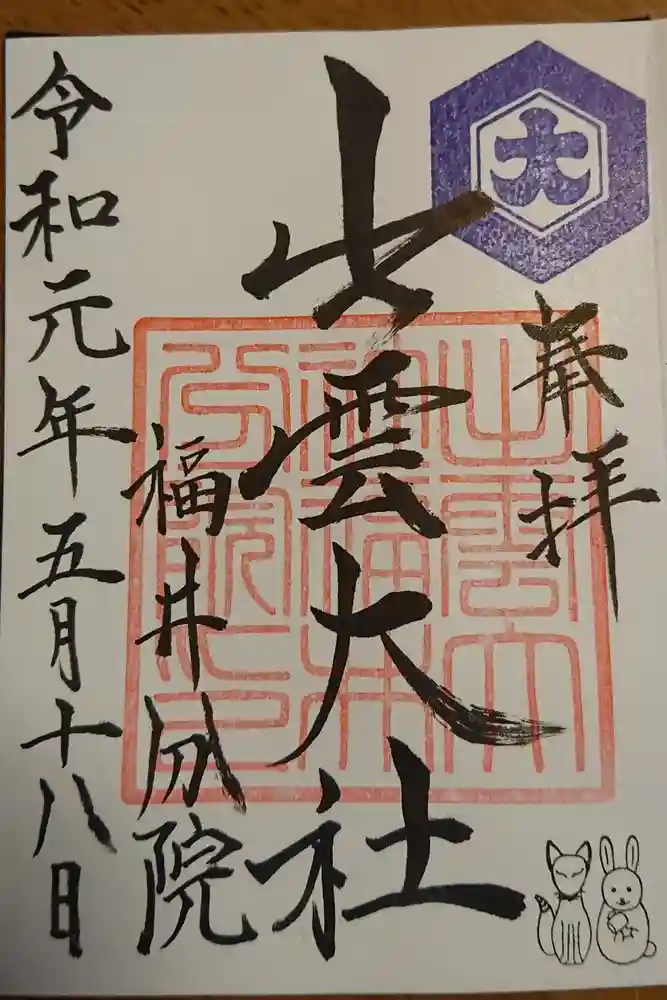 大
奉拝
出雲大社
福井分院
令和元年五月十八日
出雲大
社福井
分院之印